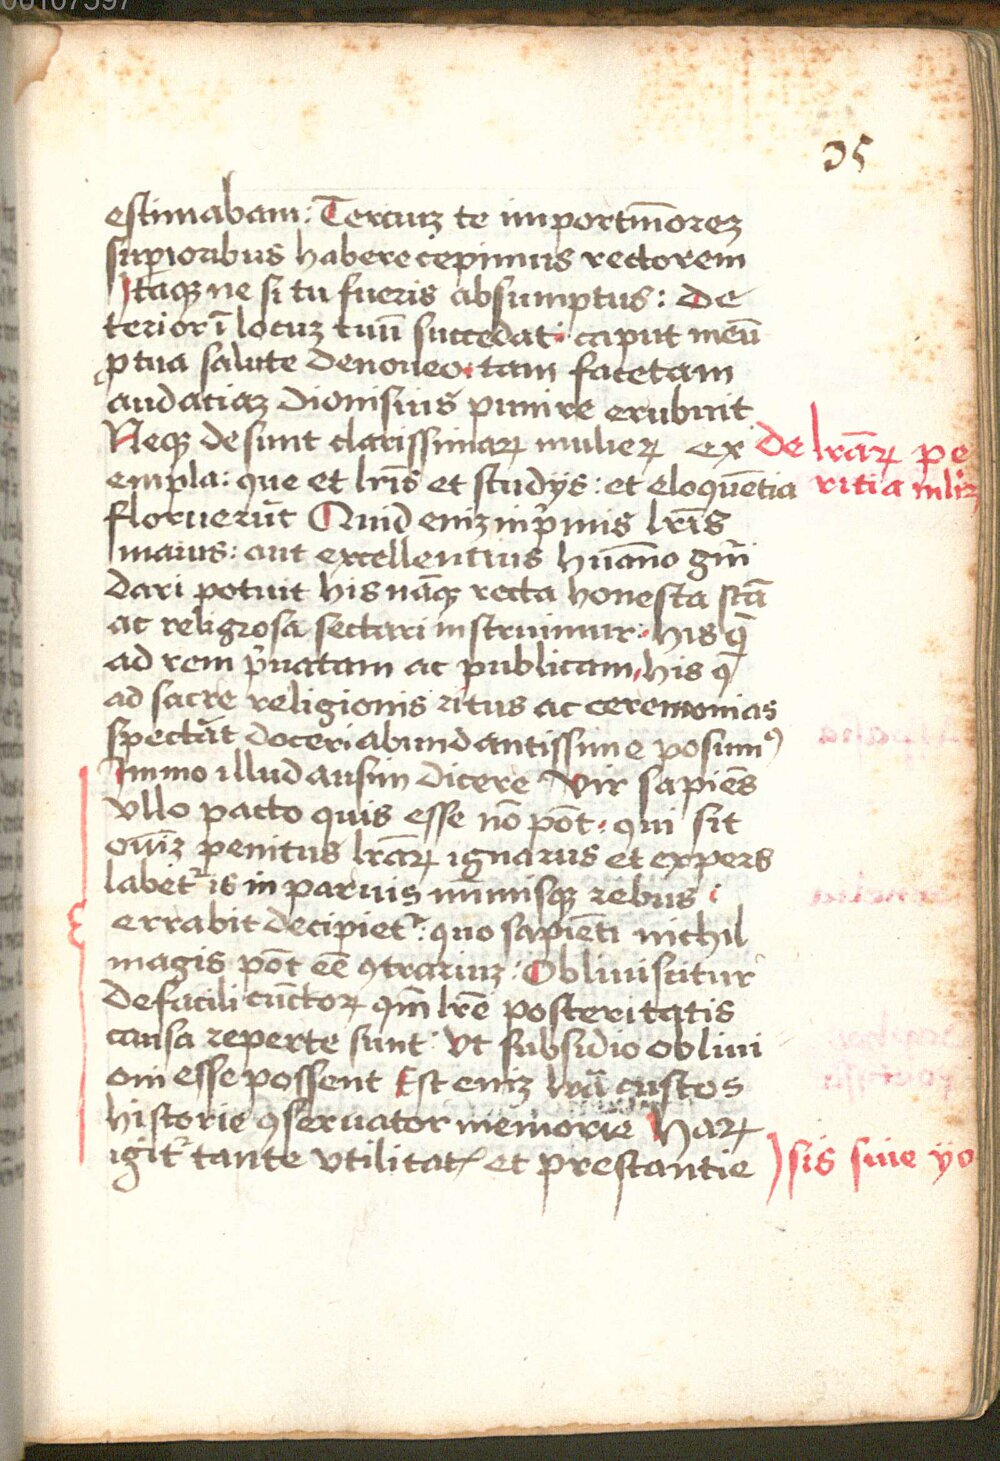 00107597
35
estimabam: Terciuꝫ te importūiorēꝫ
suꝑioribus habere cepimus rectorem
Itaqꝫ ne si tu fueris absumptus: de
terior ī locuꝫ tuū succedat: caput meū
ꝓ tua salute deuoueo: tam facetam
audaciaꝫ dionisius punire erubuit
Neqꝫ desunt clarissimaꝝ mulieꝝ ex
empla: que et lr̄is et studijs: et eloquētia
floruerūt Quid eniꝫ inp̄mis lr̄is
maius: aut excellentius hūano gn̄i
dari potuit his nāqꝫ recta honesta sc̄ta
ac religiosa sectari instruimur: his q̄
ad rem p̄uatam ac publicam, his q̄
ad sacre religionis ritus ac ceremonias
spectāt doceri abundantissime posumꝰ
Immo illud ausim dicere Vir sapiēs
vllo pacto quis esse nō pōt: qui sit
oīm penitus lr̄aꝝ ignarus et expers
labet᷑ is in paruis minimisqꝫ rebus:
errabit decipiet᷑: quo sapiēti nichil
magis pōt eē ꝯtrariuꝫ: Obliuiscitur
de facili cūctoꝝ qm̄ lr̄e posteritatis
causa reperte sunt: Vt subsidio obliui
oni esse possent Est eniꝫ lr̄a custos
historie ꝯseruator memorie Haꝝ
igit᷑ tante vtilitatꝭ et prestantie
de lr̄aꝝ pe
ritia mlr̄ꝫ
) sis siue yo